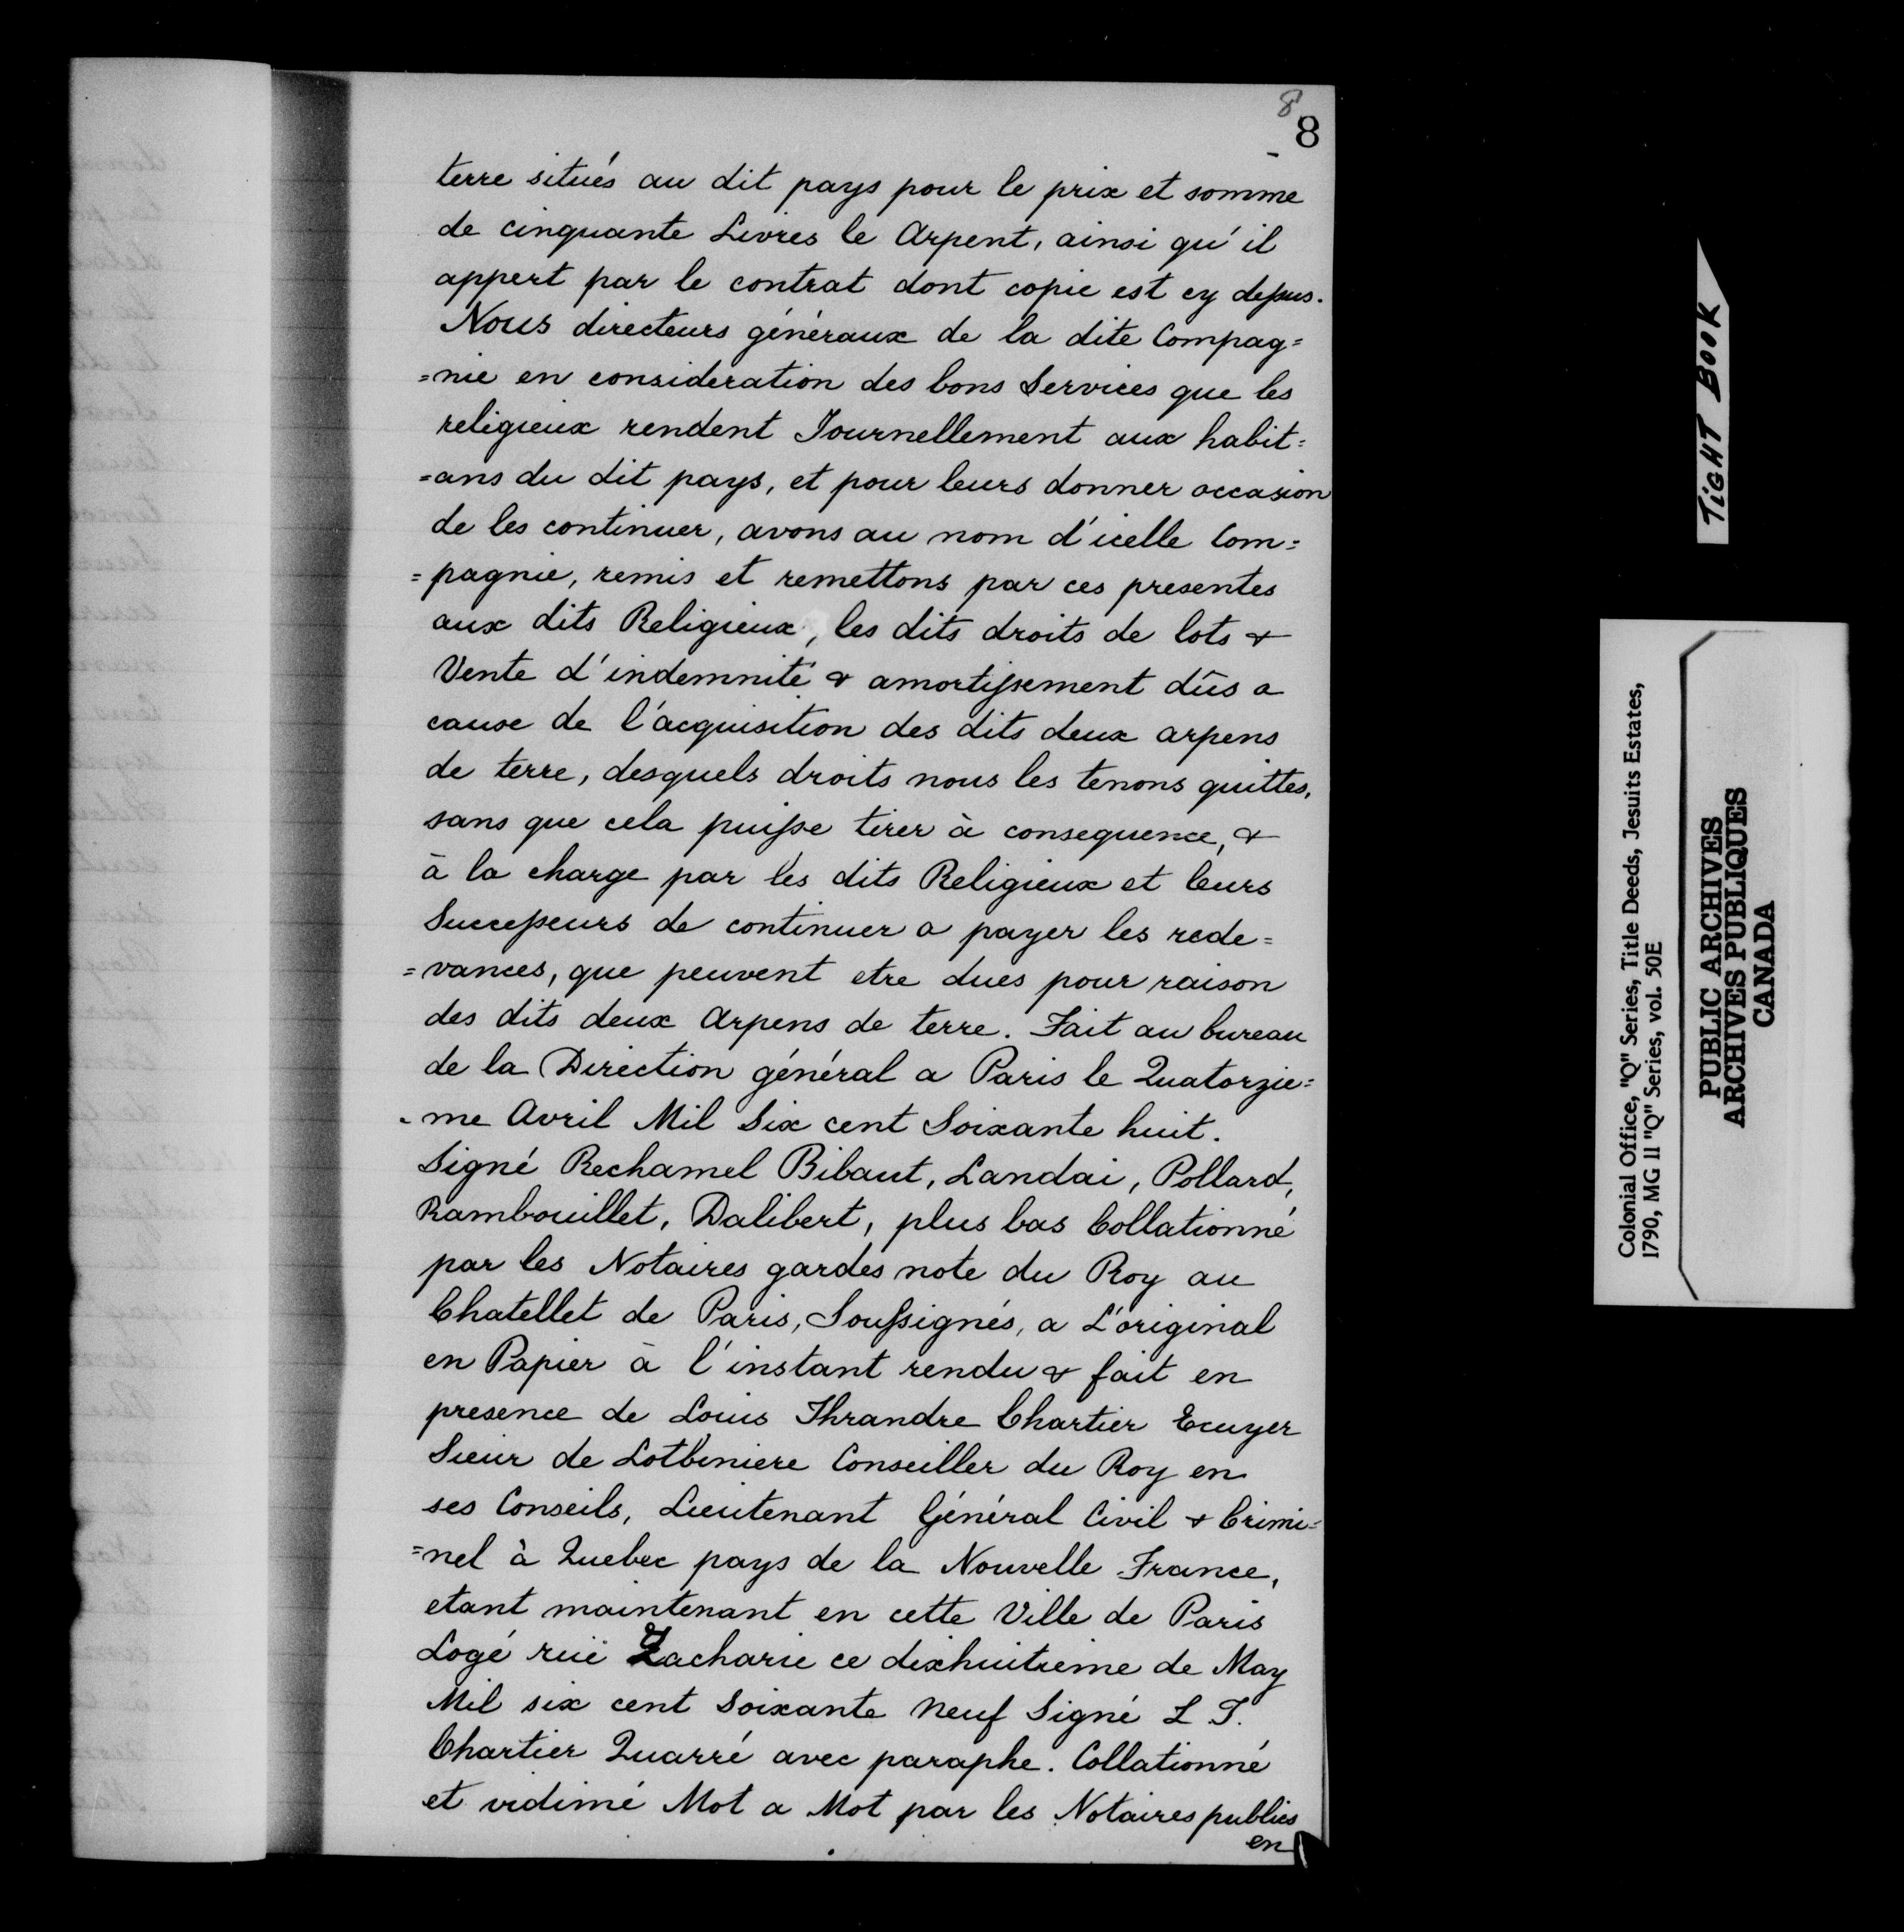 8
8
terre situés au dit pays pour le prix et somme
de cinquante Livres le Arpent, ainsi qu'il
appert par le contrat dont copie est cy deſsus.
Nous directeurs généraux de la dite Compag=
=nie en consideration des bons Services que les
religieux rendent Journellement aux habit=
=ans du dit pays, et pour leurs donner occasion
de les continuer, avons au nom d'icelle Com=
=pagnie, remis et remettons par ces presentes
aux dits Religieux, les dits droits de lots &
Vente d'indemnité & amortiſsement dûs a
cause de l'acquisition des dits deux arpens
de terre, desquels droits nous les tenons quittes,
sans que cela puiſse tirer à consequence, &
à la charge par les dits Religieux et leurs
Succeſseurs de continuer a payer les rede=
=vances, que peuvent etre dues pour raison
des dits deux Arpens de terre. Fait au bureau
de la Direction général a Paris le Quatorzie=
-me Avril Mil Six cent Soixante huit.
Signé Rechamel Bibaut, Landai, Pollard,
Rambouillet, Dalibert, plus bas Collationné
par les Notaires gardes note du Roy au
Chatellet de Paris, Souſsignés, a L'original
en Papier à l'instant rendu & fait en
presence de Louis Thrandre Chartier Ecuyer
Sieur de Lotbiniere Conseiller du Roy en
ses Conseils, Lieutenant Général Civil & Crimi=
=nel à Quebec pays de la Nouvelle France,
etant maintenant en cette Ville de Paris
Logé ruë Zacharie ce dixhuitieme de May
Mil six cent Soixante neuf Signé L T.
Chartier Quarré avec paraphe. Collationné
et vidimé Mot a Mot par les Notaires publics
en
TIGHT BOOK
Colonial Office, "Q" Series, Title Deeds, Jesuits Estates,
1790, MG 11 "Q" Series, vol. 50E
PUBLIC ARCHIVES
ARCHIVES PUBLIQUES
CANADA